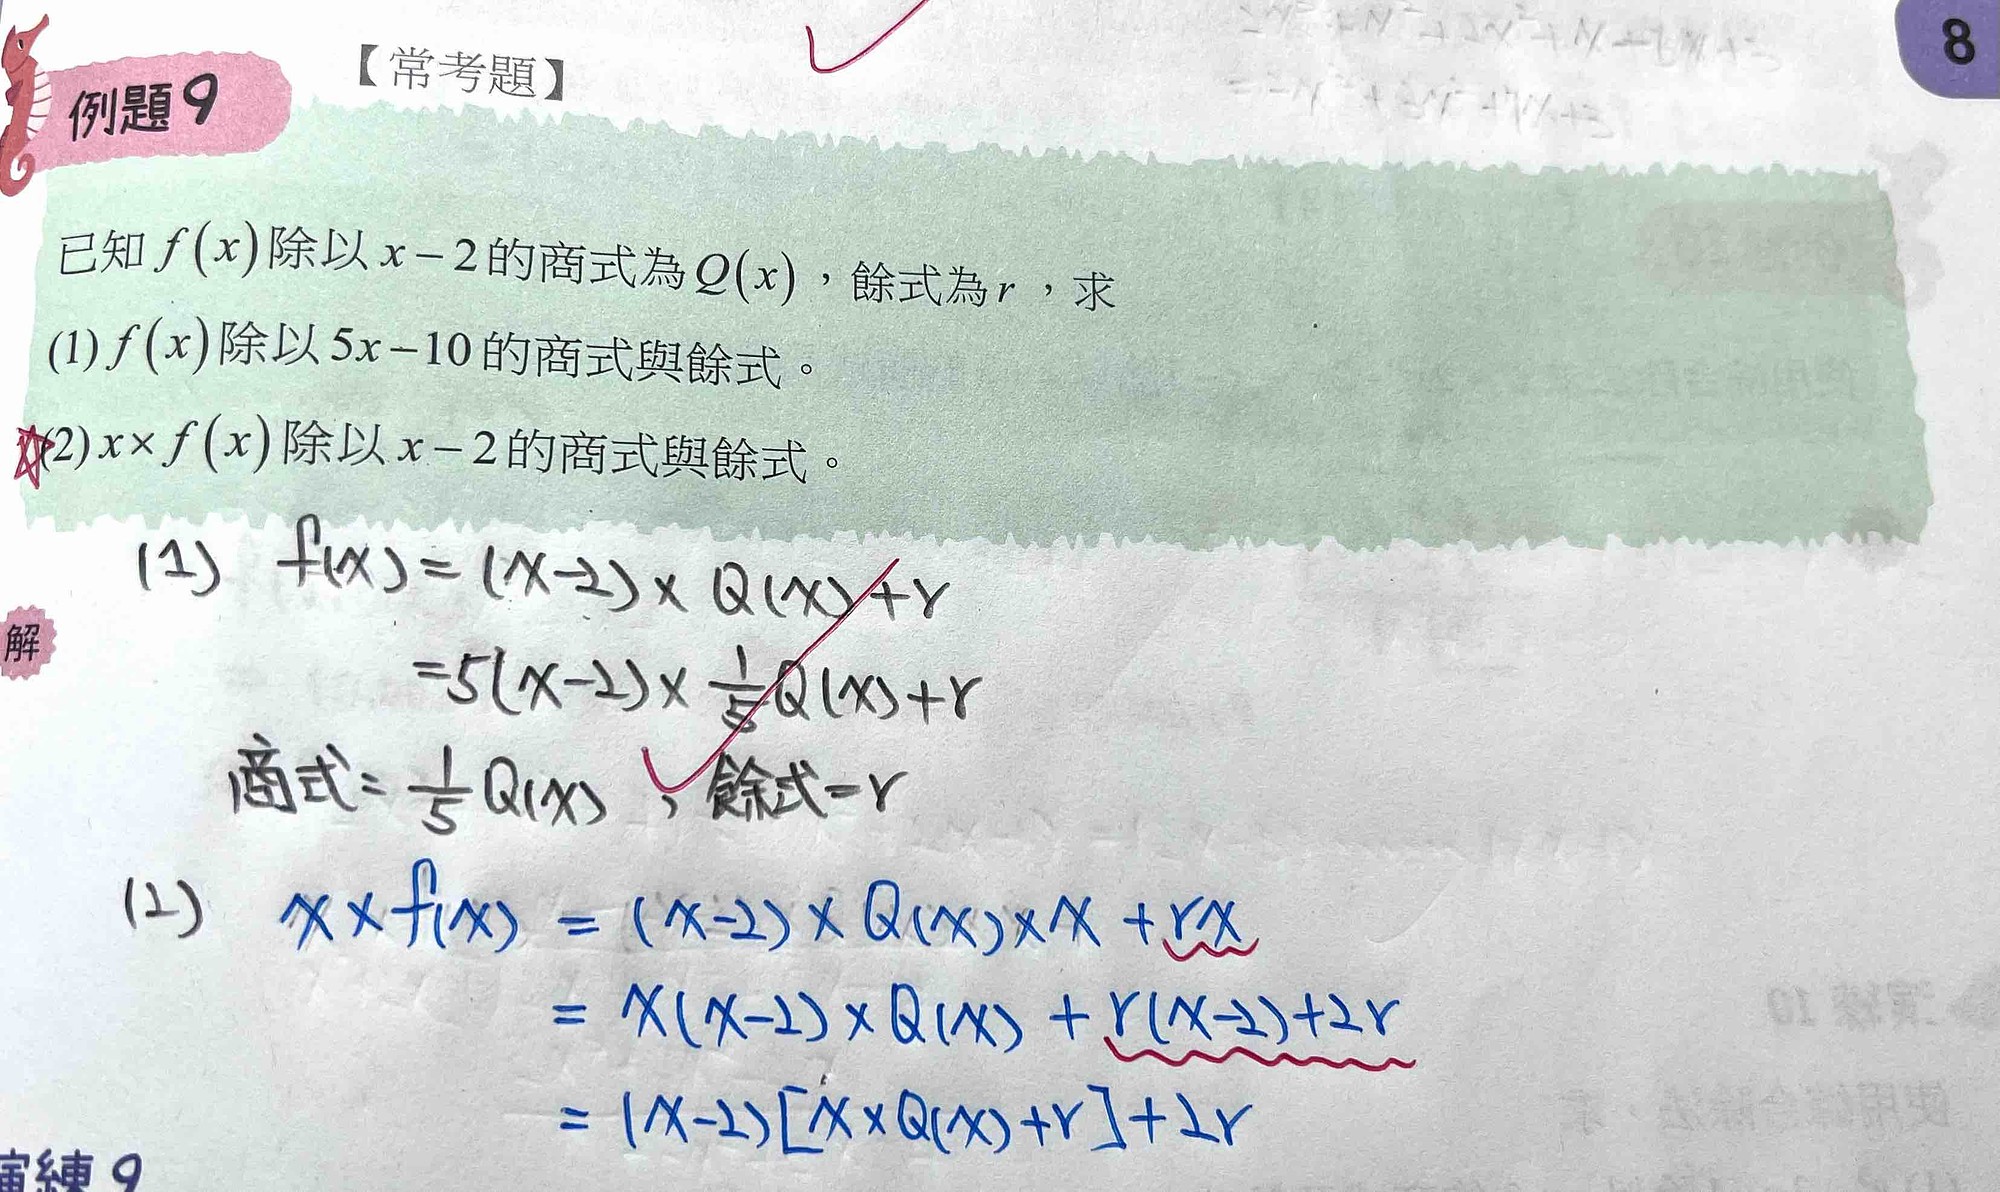 8
【常考題】
例題9
已知 f(x) 除以 x−2 的商式為 Q(x)，餘式為 r，求
(1) f(x) 除以 5x−10 的商式與餘式。
(2) x×f(x) 除以 x−2 的商式與餘式。
(1) f(x) = (x-2) × Q(x) + r
解
= 5(x-2) × 1/5 Q(x) + r
商式 = 1/5 Q(x) , 餘式 = r
(2) x × f(x) = (x-2) × Q(x) × x + rx
= x(x-2) × Q(x) + r(x-2) + 2r
= (x-2)[x × Q(x) + r] + 2r
演練 9